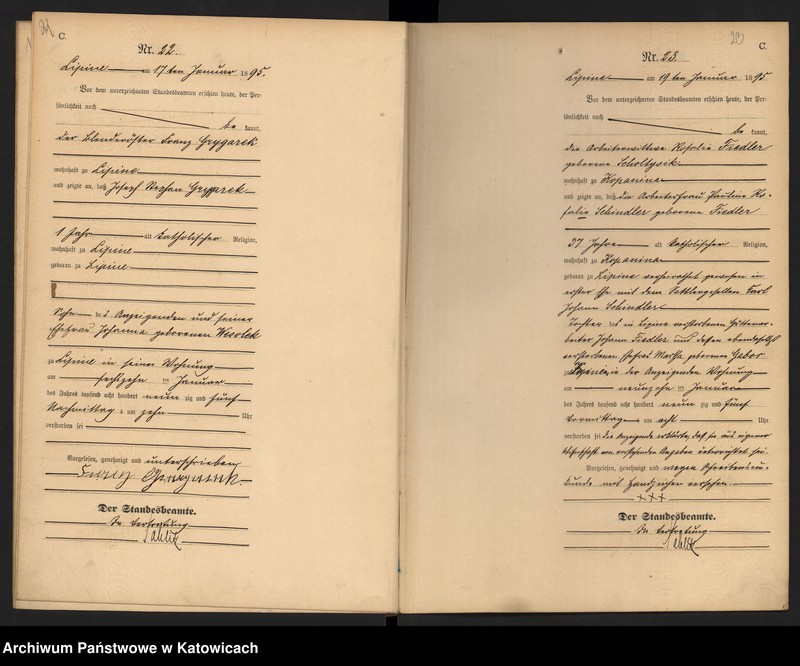 C.
Nr. 22.
Lipine am 17ten Januar 1895.
Vor dem unterzeichneten Standesbeamten erschien heute, der Per-
sönlichkeit nach
be kannt,
der Franz Grygarek
wohnhaft zu Lipine
und zeigte an, daß Josef Grygarek
1 Jahr alt katholischer Religion,
wohnhaft zu Lipine
geboren zu Lipine
Sohn des Anzeigenden und seiner
Ehefrau Johanna geborenen Wesolek
zu Lipine in seiner Wohnung
am sechszehn ten Januar
des Jahres tausend acht hundert neun zig und fünf
Nachmittag s um zehn Uhr
verstorben sei
Vorgelesen, genehmigt und unterschrieben
Franz
Der Standesbeamte.
In Vertretung
20
C.
Nr. 23.
Lipine am 19ten Januar 1895
Vor dem unterzeichneten Standesbeamten erschien heute, der Per-
sönlichkeit nach
be kannt,
die Arbeiterwittwe Rosalie Fiedler
geborene Scholtysik
wohnhaft zu Kopanina
und zeigte an, daß die Arbeiterfrau Pauline Ro-
salie Schindler geborene Fiedler
37 Jahre alt katholischer Religion,
wohnhaft zu Kopanina
geboren zu Lipine verheirathet gewesen in
erster Ehe mit dem Sattlergesellen Carl
Johann Schindler
Tochter des in Lipine verstorbenen Hüttenar-
beiter Johann Fiedler und dessen ebendaselbst
verstorbenen Ehefrau Martha geborenen Gabor
in der Anzeigenden Wohnung
am neunzehn ten Januar
des Jahres tausend acht hundert neun zig und fünf
Vormittag um acht Uhr
verstorben sei die Anzeigende erklärte, daß sie aus eigener
Wissenschaft von vorstehenden Angaben unterrichtet sei.
Vorgelesen, genehmigt und wegen Schreibensun-
kunde mit Handzeichen versehen.
+++
Der Standesbeamte.
In Vertretung
Archiwum Państwowe w Katowicach